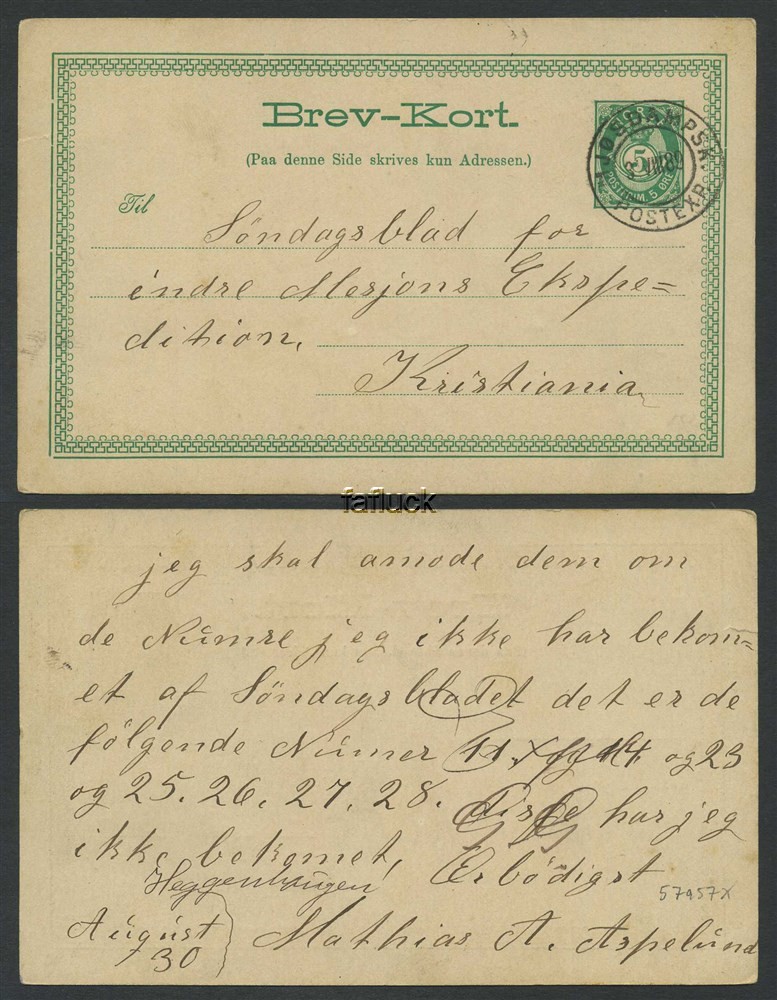 Brev-Kort.
(Paa denne Side skrives kun Adressen.)
NORGE
5
POSTFRIM. 5 ØRE
MJØSDAMPSK. POSTEXP.
VIII 89
Til
Söndagsblad for
indre Mesjons Ekspe=
dition,
Kristiania
fafluck
jeg skal amode dem om
de Numre jeg ikke har bekom=
et af Söndagsbladet det er de
fölgende Numer 11. 14. og 23
og 25. 26. 27. 28. disse har jeg
ikke bekomet, Erbödigst
Heggenhaugen
57957X
August
30
Mathias A. Aspelund